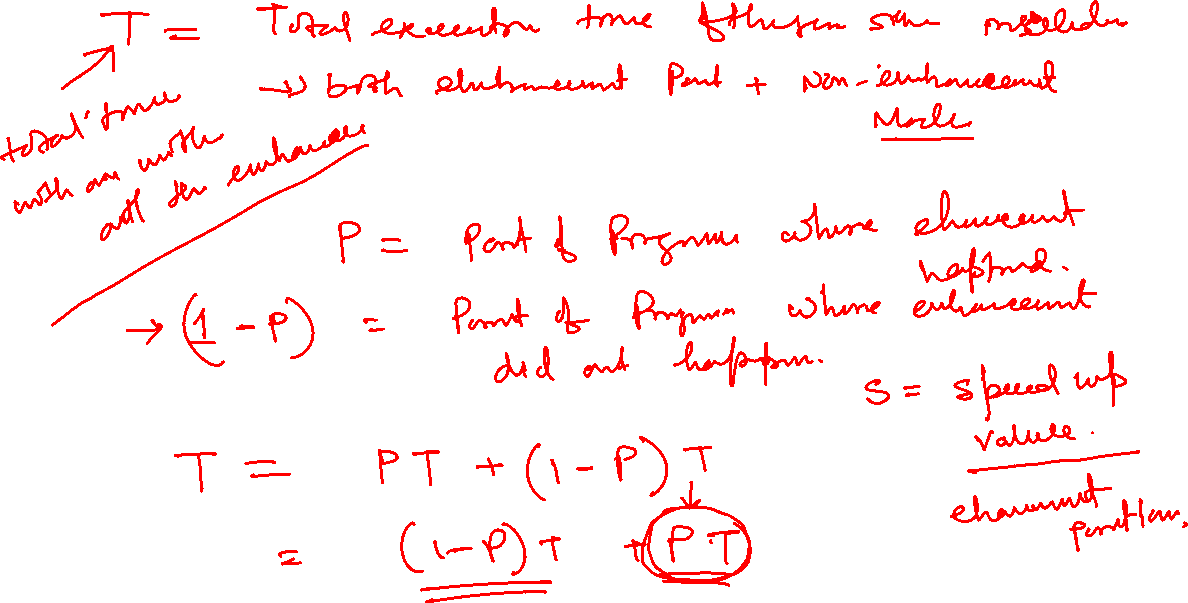 T = Total execution time of the system including
→ both enhancement Part + Non-enhancement
Mode
total time
with out the enhance
P = Part of Program where enhancement
happened.
→ (1 - P) = Part of Program where enhancement
did not happen.
S = speed up
value.
enhancement
portion.
T = PT + (1 - P) T
= (1 - P) T + (P T)